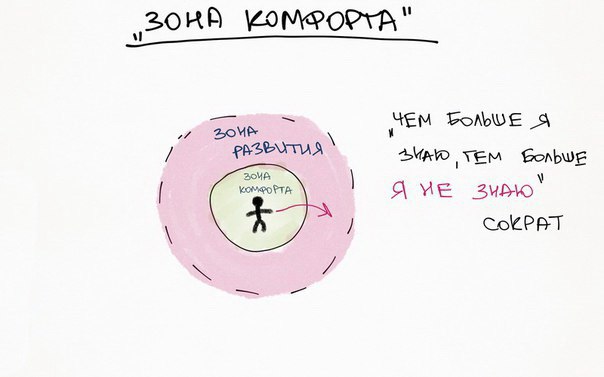 „ЗОНА КОМФОРТА"
ЗОНА
РАЗВИТИЯ
ЗОНА
КОМФОРТА
„ЧЕМ БОЛЬШЕ Я
ЗНАЮ, ТЕМ БОЛЬШЕ
Я НЕ ЗНАЮ"
СОКРАТ